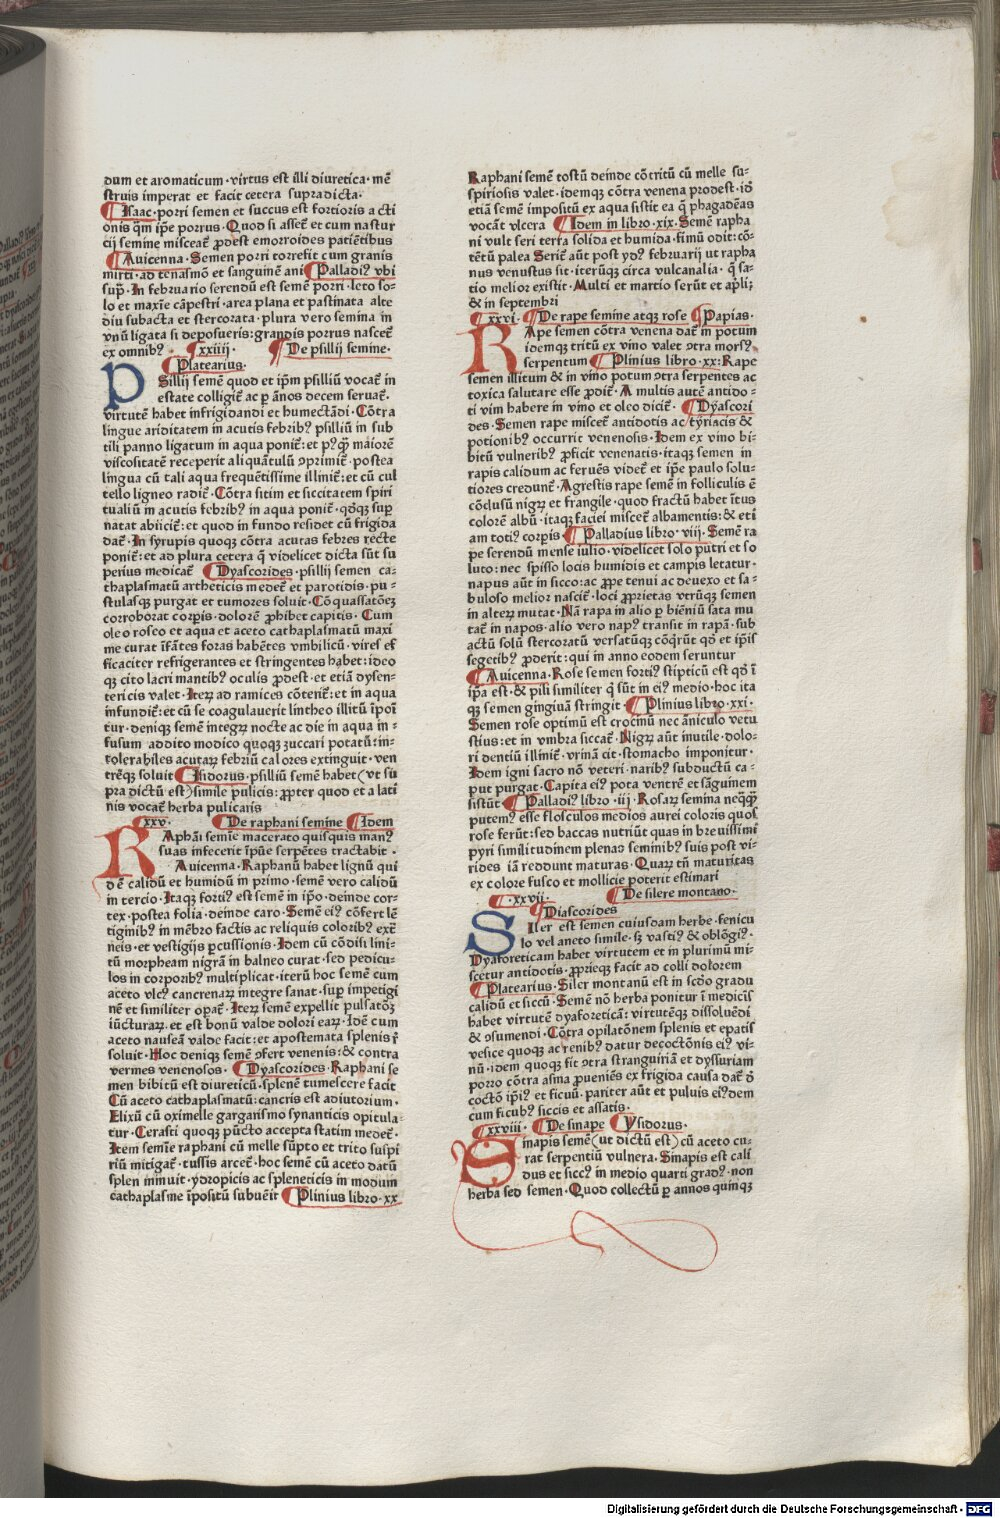 dum et aromaticum·virtus est illi diuretica·mē
struis imperat et facit cetera supradicta·
¶Isaac·porri semen et succus est fortioris acti
onis q̄m ip̄e porrus·Quod si asset̄ et cum nastur
cij semine misceat̄ ꝓdest emorroides patiētibus
¶Auicenna·Semen porri torrefit cum granis
mirti·ad tenasmō et sanguinē ani ¶Palladiꝰ vbi
supͣ·In februario serendū est semē porri·leto so-
lo et maxīe cāpestri·area plana et pastinata alte
diu subacta et stercorata·plura vero semina in
vnū ligata si deposueris:grandis porrus nascet̄
ex omnibꝰ· ¶xxiiij· ¶De psillij semine·
¶Platearius·
PSillij semē quod et ip̄m psilliū vocat̄ in
estate colligit̄ ac ꝑ ānos decem seruat̄·
virtutē habet infrigidandi et humectādi·Cōtra
lingue ariditatem in acutis febribꝰ psilliū in sub
tili panno ligatum in aqua ponit̄:et pꝰqͣ maiorē
viscositatē receperit aliquātulū ꝯprimit̄·postea
lingua cū tali aqua frequētissime illinit̄:et cū cul
tello ligneo radit̄·Cōtra sitim et siccitatem spiri
tualiū in acutis febribꝰ in aqua ponit̄·qd̄qꝫ suꝑ
natat abiicit̄:et quod in fundo residet cū frigida
dat̄·In syrupis quoqꝫ cōtra acutas febres recte
ponit̄:et ad plura cetera q̄ videlicet dicta sūt su
perius medicat̄ ¶Dyascorides·psillij semen ca-
thaplasmatū artheticis medet̄ et parotidis·pu-
stulasqꝫ purgat et tumores soluit·Cōquassatōeꝫ
corroborat corꝑis·dolorē ꝓhibet capitis·Cum
oleo roseo et aqua et aceto cathaplasmatū maxi
me curat īfātes foras habētes vmbilicū·vires ef
ficaciter refrigerantes et stringentes habet:ideo
qꝫ cito lacrimantibꝰ oculis ꝓdest·et etiā dysen-
tericis valet·Iteꝝ ad ramices cōterit̄:et in aqua
infundit̄:et cū se coagulauerit lintheo illitū īponi
tur·denique semē integꝝ nocte ac die in aqua in-
fusum addito modico quoqꝫ zuccari potatū:in-
tolerabiles acutaꝝ febriū calores extinguit·ven
trēqꝫ soluit ¶Isidorus·psilliū semē habet(vt su
pra dictū est)simile pulicis:ꝓpter quod et a lati
nis vocat̄ herba pulicaris
¶xxv· ¶De raphani semine ¶Idem
RAphāi semīe macerato quisquis manꝰ
suas infecerit īpūe serpētes tractabit·
Auicenna·Raphanū habet lignū qui
dē calidū et humidū in primo·semē vero calidū
in tercio·Itaqꝫ fortiꝰ est semē in ip̄o·deinde cor-
tex·postea folia·deinde caro·Semē eiꝰ cōfert lē
tiginibꝰ in mēbro factis ac reliquis coloribꝰ extͣ
neis·et vestigijs ꝑcussionis·Idem cū cōdisi lini-
tū morpheam nigrā in balneo curat·sed pedicu-
los in corporibꝰ multiplicat·iterū hoc semē cum
aceto vlcꝰ cancrenaꝝ integre sanat·suꝑ impetigi
nē et similiter opat̄·Iteꝝ semē expellit pulsatōꝫ
iūcturaꝝ·et est bonū valde dolori eaꝝ·Idē cum
aceto nauseā valde facit:et apostemata splenis ř
soluit·Hoc deniqꝫ semē ꝯfert venenis:& contra
vermes venenosos· ¶Dyascorides·Raphani se
men bibitū est diureticū·splenē tumescere facit
Cū aceto cathaplasmatū:cancris est adiutorium·
Elixū cū oximelle gargarismo synanticis opitula-
tur·Cerasti quoqꝫ pūcto accepta statim medet̄·
Item semīe raphani cū melle sūpto et trito suspi
riū mitigat̄·tussis arcet̄·hoc semē cū aceto datū
splen inmuit·ydropicis ac spleneticis in modum
cathaplasme īpositū subueit ¶Plinius libro·xx
Raphani semē tostū deinde cōtritū cū melle su-
spiriosis valet·idemqꝫ cōtra venena prodest·id̄
etiā semē impositū ex aqua sistit ea q̄ phagadēas
vocāt vlcera ¶Idem in libro·xix·Semē rapha
ni vult seri terra solida et humida·fimū odit:cō-
tētū palea Serit̄ aūt post ydꝰ februarij ut rapha
nus venustus sit·iterūqꝫ circa vulcanalia·q̄ sa-
tio melior existit·Multi et martio serūt et apli;
& in septembri
¶xxvi· ¶De rape semine atqꝫ rose ¶Papias·
RApe semen cōtra venena dat̄ in potum
idemqꝫ tritū ex vino valet ꝯtra morsꝰ
serpentum ¶Plinius libro·xx:Rape
semen illitum & in vino potum ꝯtra serpentes ac
toxica salutare esse ꝓdit̄·A multis autē antido-
ti vim habere in vino et oleo dicit̄· ¶Dyascori
des·Semen rape miscet̄ antidotis ac tyriacis &
potionibꝰ occurrit venenosis·Idem ex vino bi-
bitū vulneribꝰ ꝓficit venenatis·itaqꝫ semen in
rapis calidum ac feruēs videt̄ et ip̄e paulo solu-
tiores credunt̄·Agrestis rape semē in folliculis ē
cōclusū nigꝝ et frangile·quod fractū habet ītus
colorē albū·itaqꝫ faciei miscet̄ albamentis:& eti
am totiꝰ corꝑis· ¶Palladius libro·viij·Semē ra
pe serendū mense iulio·videlicet solo putri et so
luto:nec spisso locis humidis et campis letatur·
napus aūt in sicco:ac ꝓpe tenui ac deuexo et sa-
buloso melior nascit̄·loci ꝓprietas vtrūqꝫ semen
in alteꝝ mutat·Nā rapa in alio ꝑ biēniū sata mu
tat̄ in napos·alio vero napꝰ transit in rapā·sub
actū solū stercoratū versatūqꝫ cōq̄rūt qd̄ et ip̄is
segetibꝰ ꝓderit:qui in anno eodem seruntur
¶Auicenna·Rose semen fortiꝰ stipticū est qd̄ ī
ip̄a est·& pili similiter q̄ sūt in eiꝰ medio·hoc ita
qꝫ semen gingiuā stringit ¶Plinius libro·xxi·
Semen rose optimū est crocinū nec āniculo vetu
stius:et in vmbra siccat̄·Nigꝝ aūt inutile·dolo-
ri dentiū illinit̄·vrinā cit·stomacho imponitur·
Idem igni sacro nō veteri·naribꝰ subductū ca-
put purgat·Capita eiꝰ pota ventrē et sāguinem
sistūt ¶Palladiꝰ libro·iij·Rosaꝝ semina neqͣqͣ
putemꝰ esse flosculos medios aurei coloris quos
rose ferūt:sed baccas nutriūt quas in breuissimi
pyri similitudinem plenas seminibꝰ suis post vi-
rides iā reddunt maturas·Quaꝝ tn̄ maturitas
ex colore fusco et mollicie poterit estimari
¶·xxvij· ¶De silere montano·
¶Diascorides
SIler est semen cuiusdam herbe·fenicu
lo vel aneto simile·sꝫ vastiꝰ & oblōgiꝰ·
Dyaforeticam habet virtutem et in plurimū mi-
scetur antidotis·ꝓprieqꝫ facit ad colli dolorem
¶Platearius·Siler montanū est in scd̄o gradu
calidū et siccū·Semē nō herba ponitur ī medicīs
habet virtutē dyaforeticā:virtutēqꝫ dissoluēdi
& ꝯsumendi·Cōtra opilatōnem splenis et epatis
vesice quoqꝫ ac renibꝰ datur decoctōnis eiꝰ vi-
nū·idem quoqꝫ fit ꝯtra stranguiriā et dyssuriam
porro cōtra asma ꝓueniēs ex frigida causa dat̄ d̄
coctō ip̄iꝰ et ficuū·pariter aūt et puluis eiꝰdem
cum ficubꝰ siccis et assatis·
¶xxviij· ¶De sinape ¶Ysidorus·
Sinapis semē(ut dictū est)cū aceto cu-
rat serpentiū vulnera·Sinapis est cali
dus et siccꝰ in medio quarti gradꝰ·non
herba sed semen·Quod collectū ꝑ annos quinqꝫ
Digitalisierung gefördert durch die Deutsche Forschungsgemeinschaft - DFG